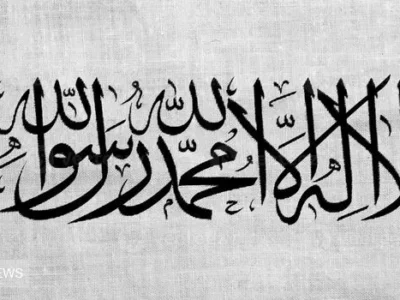 لا إله إلا الله محمد رسول الله
EWS